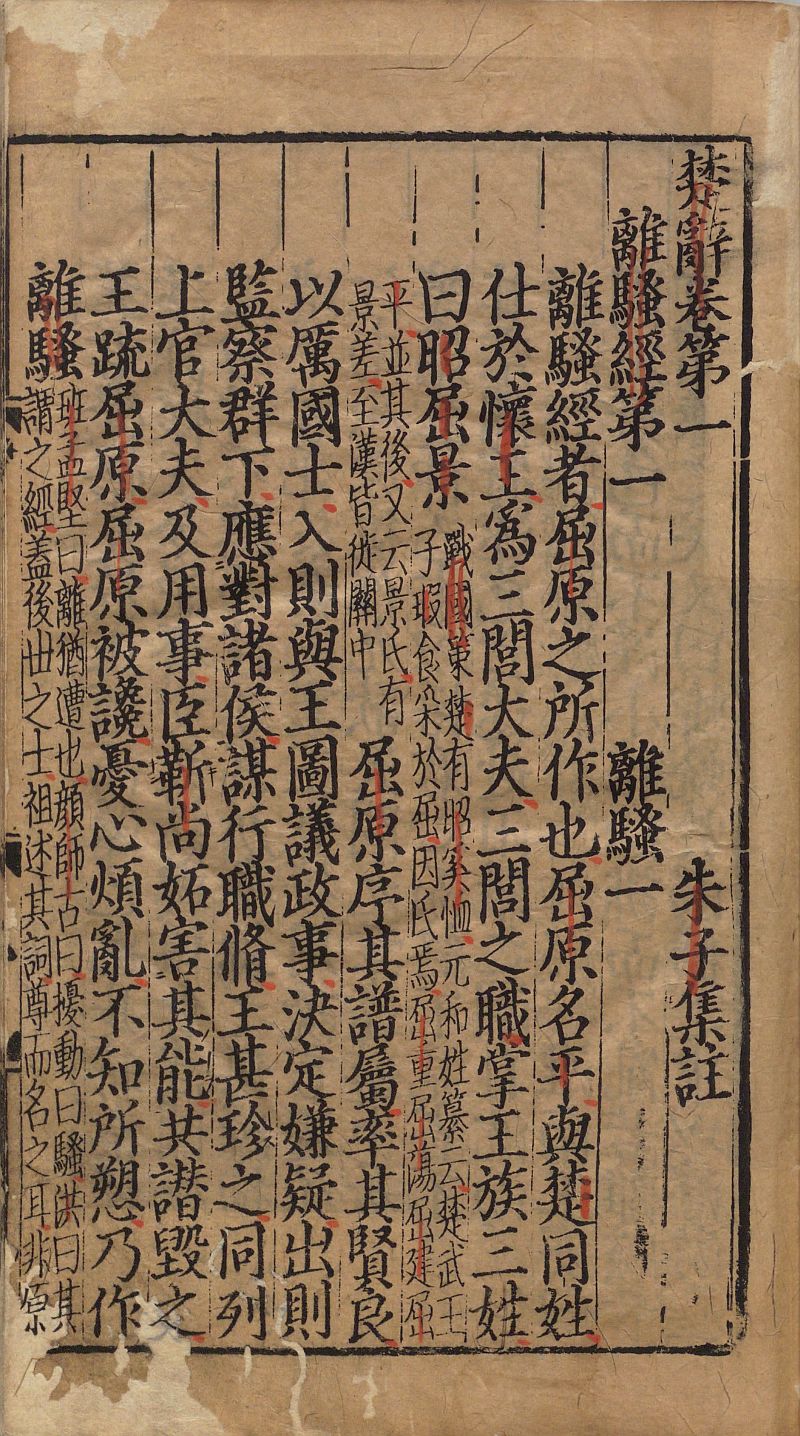 楚辭卷第一 朱子集註
離騷經第一 離騷一
離騷經者屈原之所作也屈原名平與楚同姓
仕於懷王爲三閭大夫三閭之職掌王族三姓
曰昭屈景
戰國策楚有昭奚恤元和姓纂云楚武王
子瑕食采於屈因氏焉屈重屈蕩屈建屈
平並其後又云景氏有
景差至漢皆徙關中
屈原序其譜屬率其賢良
以厲國士入則與王圖議政事決定嫌疑出則
監察群下應對諸侯謀行職脩王甚珍之同列
上官大夫及用事臣靳尚妬害其能共譖毀之
王疏屈原屈原被讒憂心煩亂不知所愬乃作
離騷
班孟堅曰離猶遭也顔師古曰擾動曰騷洪曰其
謂之經蓋後世之士祖述其詞尊而名之耳非原